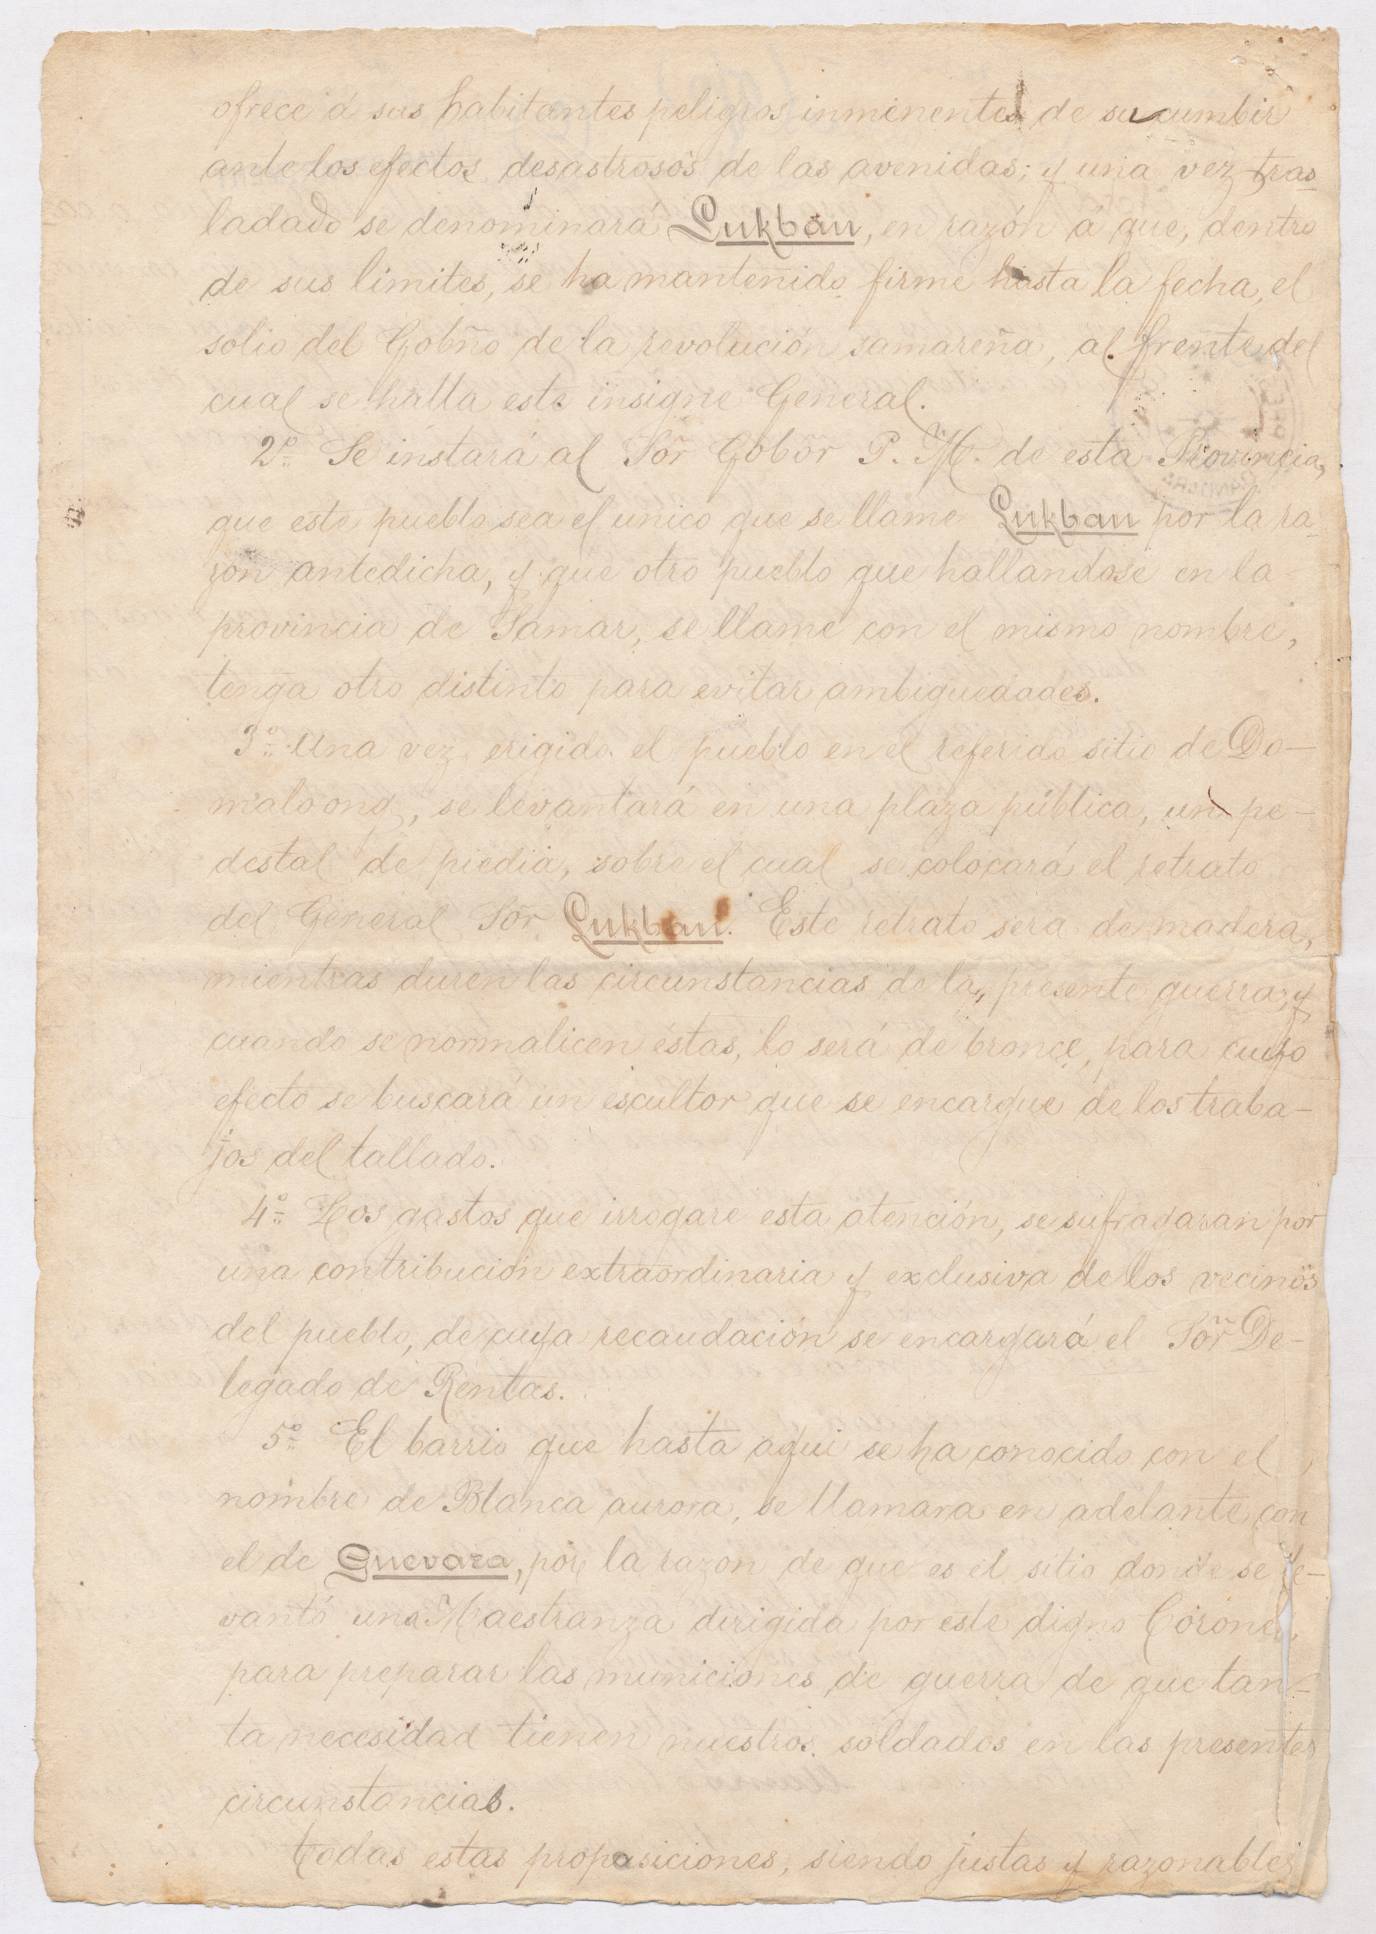 ofrece á sus habitantes peligros inminentes de sucumbir
ante los efectos desastrosos de las avenidas; y una vez tras
ladado se denominará Lukban, en razón á que, dentro
de sus límites, se ha mantenido firme hasta la fecha, el
solio del Gobño de la revolución samareña, al frente del
cual se halla este insigne General.
2º Se instará al Sõr Gobõr P. M. de esta Provincia,
que este pueblo sea el unico que se llame Lukban por la ra-
zon antedicha, y que otro pueblo que hallandose en la
provincia de Samar, se llame con el mismo nombre,
tenga otro distinto para evitar ambiguedades.
3º Una vez erigido el pueblo en el referido sitio de Do-
maloong, se levantará en una plaza pública, un pe-
destal de piedra, sobre el cual se colocará el retrato
del General Sõr Lukban. Este retrato sera de madera,
mientras duren las circunstancias de la presente guerra, y
cuando se normalicen éstas, lo será de bronce, para cuyo
efecto se buscará un escultor que se encargue de los traba-
jos del tallado.
4º Los gastos que irrogare esta atención, se sufragaran por
una contribución extraordinaria y exclusiva de los vecinos
del pueblo, de cuya recaudación se encargará el Sõr De-
legado de Rentas.
5º El barrio que hasta aqui se ha conocido con el
nombre de Blanca aurora, se llamara en adelante con
el de Guevara, por la razon de que es el sitio donde se le-
vantó una Maestranza dirigida por este digno Coronel,
para preparar las municiones de guerra de que tan-
ta necesidad tienen nuestros soldados en las presentes
circunstancias.
Todas estas proposiciones, siendo justas y razonables